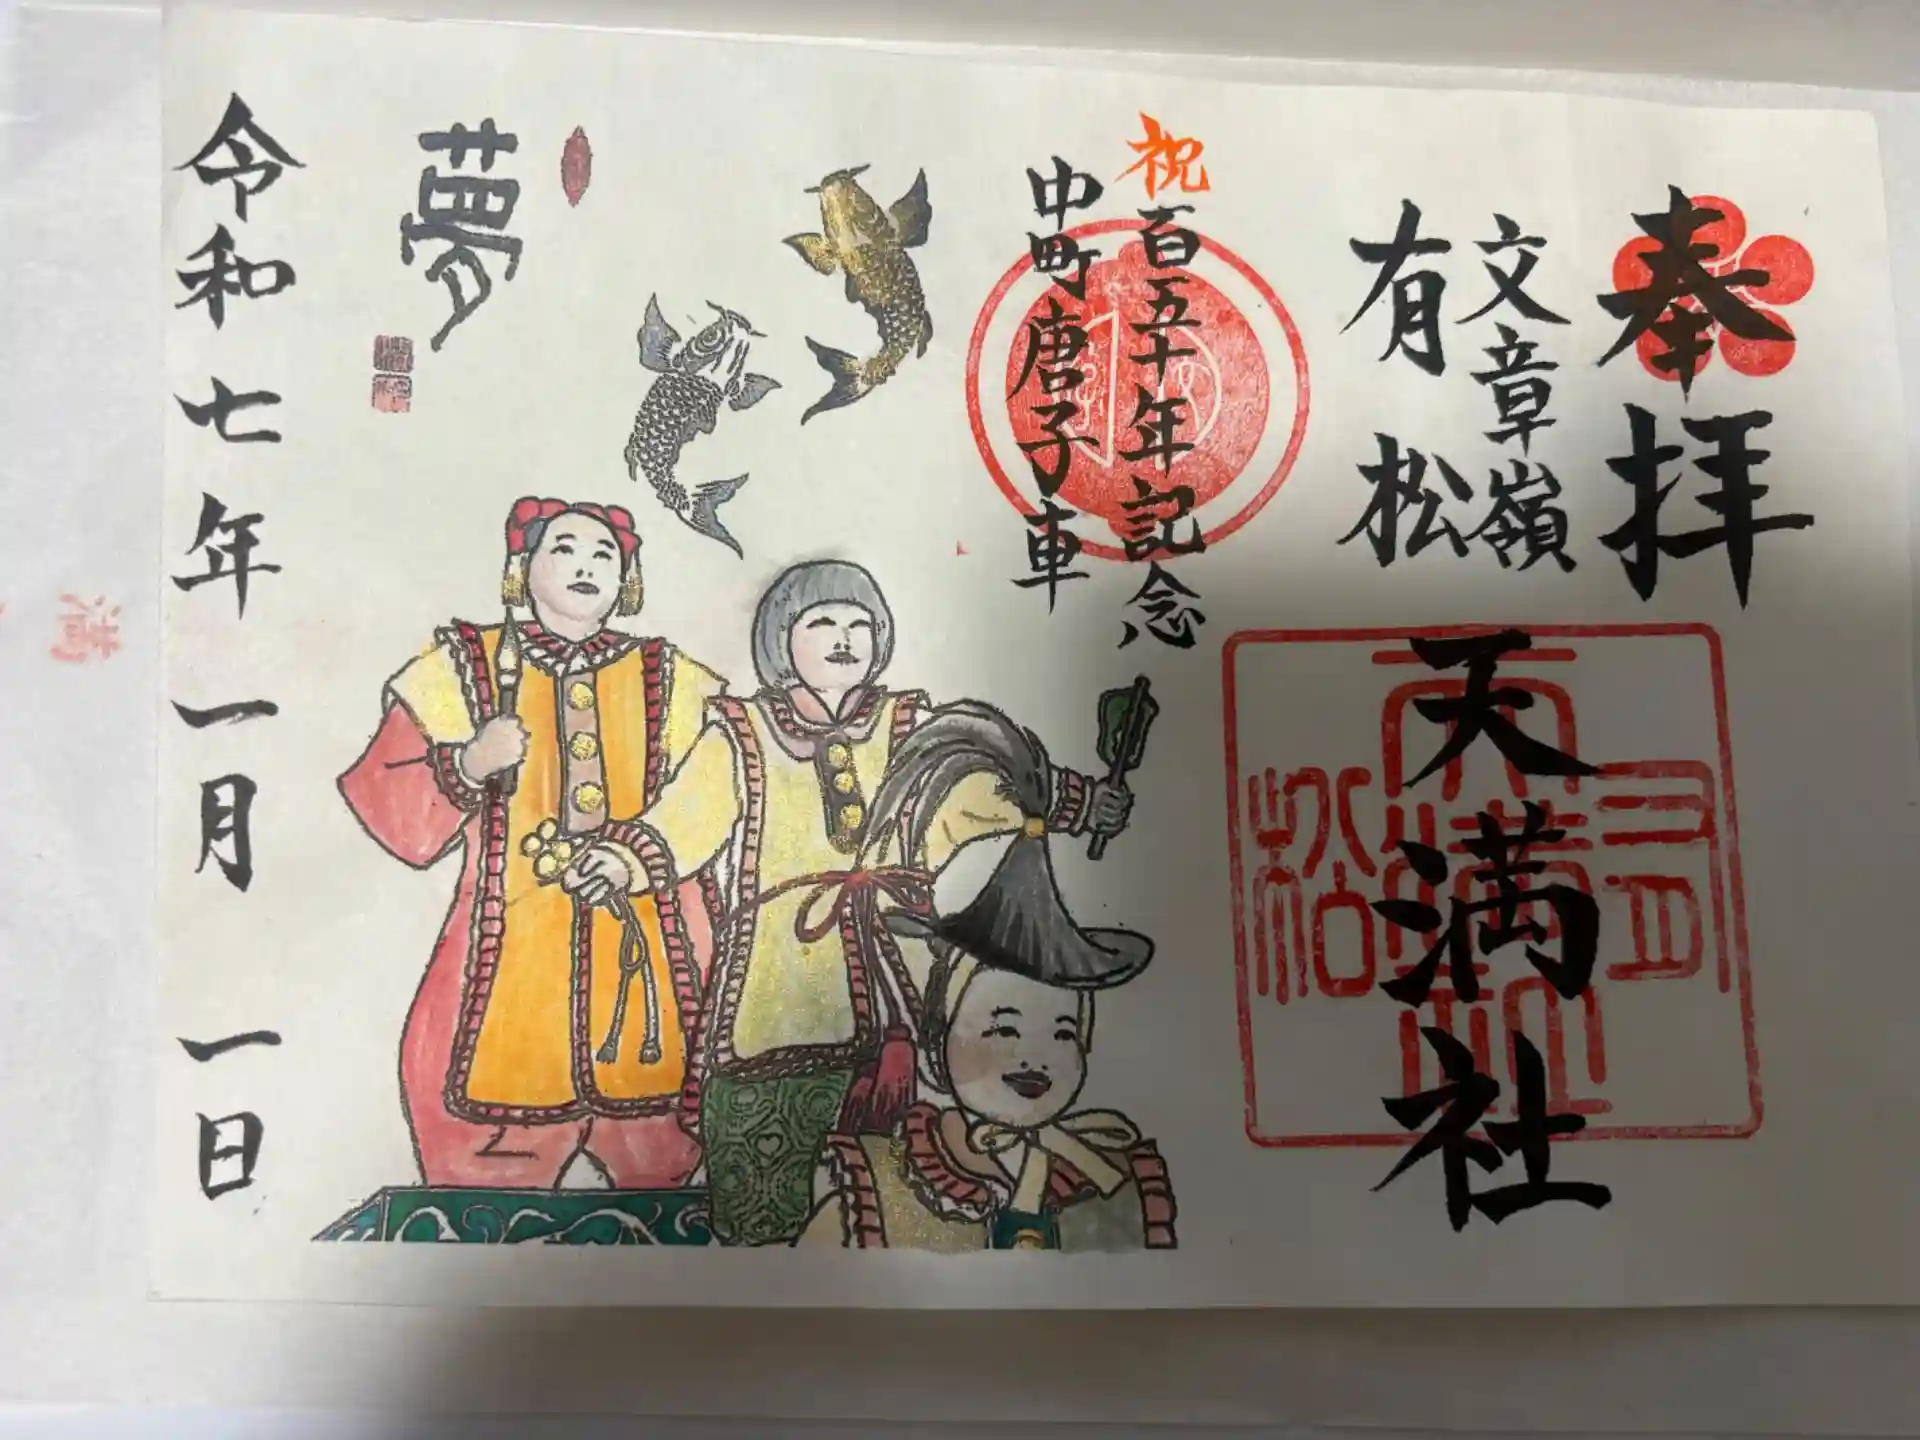 奉拝
文章嶺
有松
天満社
祝 百五十年記念
中町唐子車
夢
令和七年一月一日
有松
天満社
満